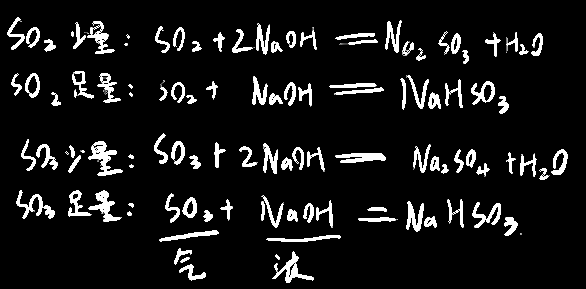 SO₂少量: SO₂+2NaOH=Na₂SO₃+H₂O
SO₂足量: SO₂+ NaOH=NaHSO₃
SO₃少量: SO₃+2NaOH=Na₂SO₄+H₂O
SO₃足量: SO₃+ NaOH=NaHSO₃.
气 液